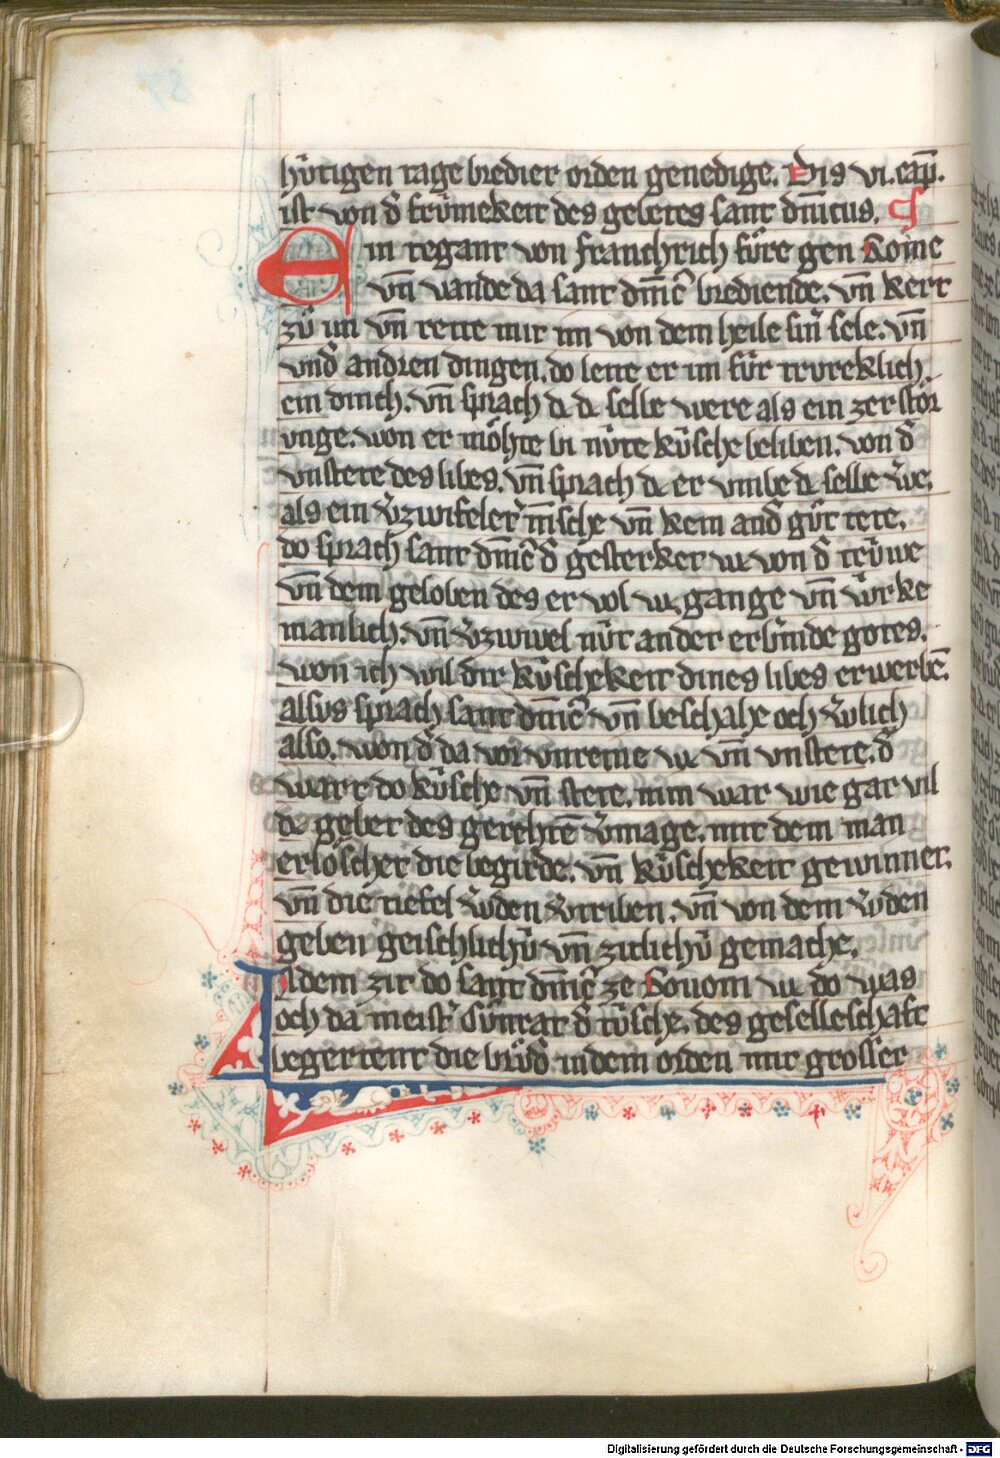 hütigen tage bredier orden genedige. Dis vi. cap̄.
ist von d̄ frümekeit des gebetes sant dn̄icus.
Ein tegant von franchrich füre gen Rome
vn̄ vande da sant dmīc brediende. vn̄ kert
zů im vn̄ rette mit im von dem heile sin̄ sele. vn̄
vnd̄ andren dingen. do leite er im für trureklich
ein dinch. vn̄ sprach dc dc selbe were als ein zerstör
vnge. won er möhte bi nüte küsche beliben. von d̄
vnstete des libes. vn̄ sprach dc er vmbe dc selbe we͛.
als ein v͛zwifeler mn̄sche vn̄ kein and̄ gůt tete.
do sprach sant dmīc d̄ gesterket wc von d̄ trüwe
vn̄ dem geloben des er vol wc. gange vn̄ würke
manlich. vn̄ v͛zwiuel nüt an der erbr̄mde gotes.
won ich wil dir küschekeit dines libes erwerbē.
alsus sprach sant dmīc vn̄ beschahe och v͛wlich
also. won d̄ da vor vnreine wc vn̄ vnstete. d̄
wart do küsche vn̄ stete. nim war wie gar vil
dc gebet des gerehtē v͛mage. mit dem man
erlöschet die begirde. vn̄ küschekeit gewinnet.
vn̄ die tiefel w͛den v͛triben. vn̄ von dem w͛den
geben geischlichü vn̄ zitlichü gemache.
In dem zit do sant dmīc ze Bonom wc do was
och da meist͛ Cůnrat d̄ tüsche. des geselleschaft
begertent die brůd̄ in dem orden mit grosser
Digitalisierung gefördert durch die Deutsche Forschungsgemeinschaft - DFG